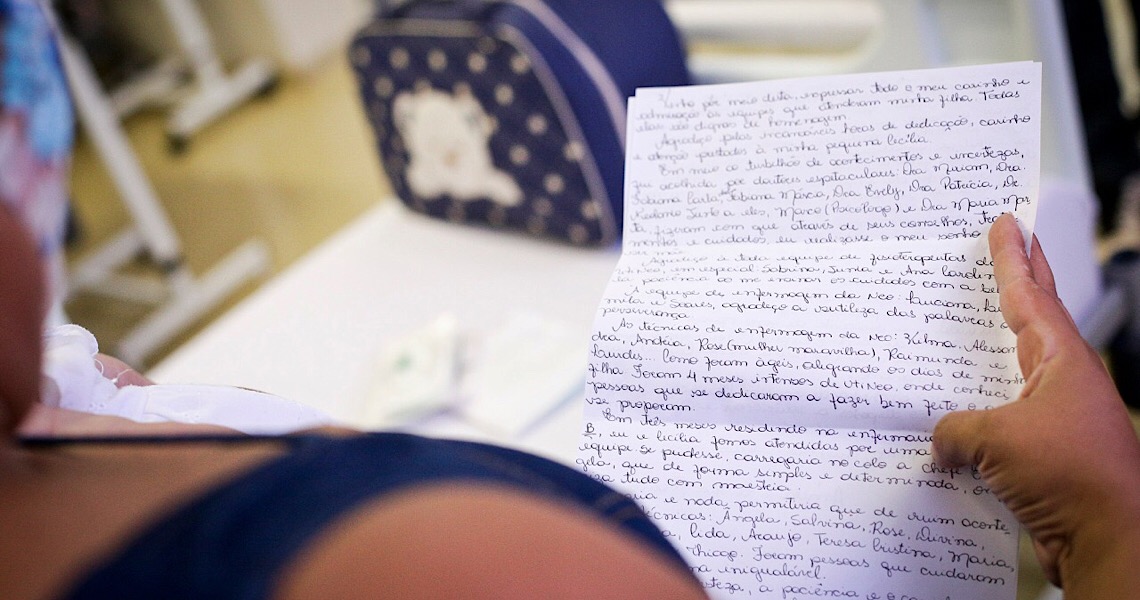 Venho por meio desta, expressar todo o meu carinho e
admiração às equipes que atenderam minha filha. Todas
elas são dignas de homenagem.
Agradeço pelas incansáveis horas de dedicação, carinho
e atenção prestados à minha pequena Cecília.
Em meio ao turbilhão de acontecimentos e incertezas,
fui acolhida por doutores espetaculares: Dra Miriam, Dra.
Fabiana Márcia, Dra Evely, Dra Patrícia, Dr.
Junto a eles, Marco (Psicólogo) e Dra Maria Mar
ta fizeram com que através de seus conselhos,
mentos e cuidados, eu realizasse o meu sonho
ser mãe.
Agradeço à toda equipe de fisioterapeutas da
Uti Neo, em especial: Sabrina, Junia e Ana Carolin
a paciência ao me ensinar os cuidados com a be
À equipe de enfermagem da Neo: Luciana,
mila e Soares, agradeço a sutileza das palavras
perseverança.
As técnicas de enfermagem da Neo: Kilma, Alessan
dra, Andréia, Rose (mulher maravilha), Raimunda e
Lourdes... Como foram ágeis, alegrando os dias de minh
filha. Foram 4 meses intensos de Uti Neo, onde conheci
pessoas que se dedicaram a fazer bem feito o
se propõem.
Em três meses residindo na enfermaria
B, eu e Cecília fomos atendidas por uma
equipe se pudesse, carregaria no colo a chefe
que de forma simples e determinada,
tudo com maestria.
e nada permitiria que de ruim aconte-
técnicas: Ângela, Salvina, Rose, Divina,
Lida, Araujo, Teresa Cristina, Maria,
Thiago. Foram pessoas que cuidaram
inigualável.
a paciência e o